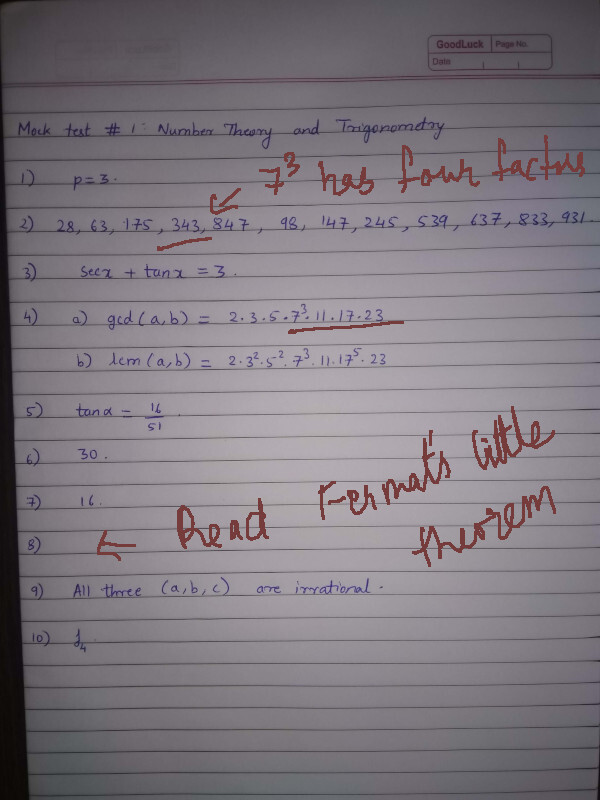 GoodLuck Page No.
Date
Mock test # 1: Number Theory and Trigonometry
7³ has four factors
1) p = 3.
2) 28, 63, 175, 343, 847, 98, 147, 245, 539, 637, 833, 931.
3) secx + tanx = 3.
4) a) gcd(a,b) = 2·3·5·7³·11·17·23
b) lcm(a,b) = 2·3²·5⁻²·7³·11·17⁵·23
5) tanα = 16/51.
6) 30.
7) 16.
8) ← Read Fermat's little theorem
9) All three (a,b,c) are irrational.
10)